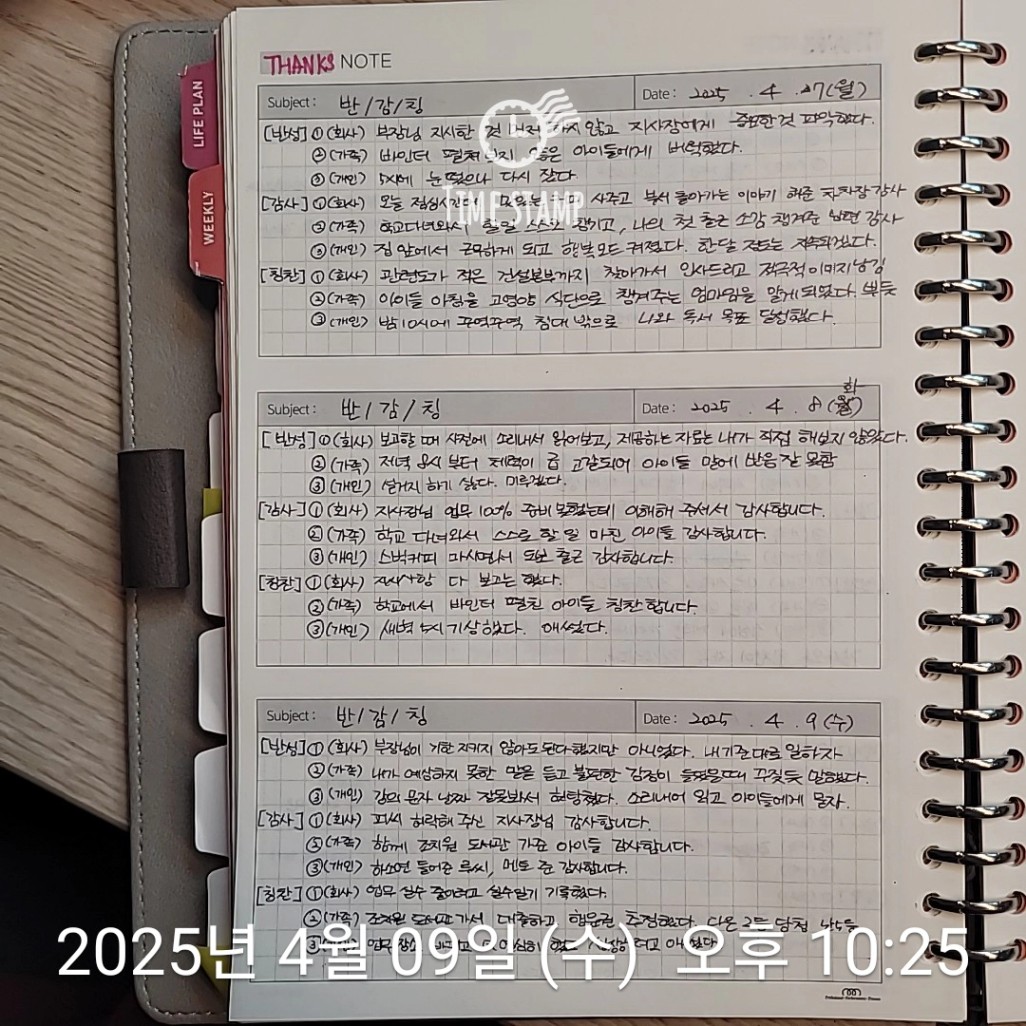 THANKS NOTE
LIFE PLAN
WEEKLY
Subject : 반/감/칭 Date : 2025 . 4 . 7(월)
[반성] ① (회사) 부장님 지시한 것 하지 않고 지사장에게 중요한 것 파악했다.
② (가족) 바인더 펼쳐보지 않은 아이들에게 버럭했다.
③ (개인) 5시에 눈 떴으나 다시 잤다.
[감사] ① (회사) 오늘 점심시간에 사주고 부서 돌아가는 이야기 해준 차차장 감사
② (가족) 학교다녀와서 할 일 스스로 챙기고, 나의 첫 출근 소감 챙겨준 남편 감사
③ (개인) 집 앞에서 근무하게 되고 행복모드 켜졌다. 한달 정도는 지속되겠다.
[칭찬] ① (회사) 관련도가 적은 건설본부까지 찾아가서 인사드리고 적극적 이미지 남김
② (가족) 아이들 아침을 고영양 식단으로 챙겨주는 엄마임을 알게 되었다. 뿌듯
③ (개인) 밤 10시에 꾸역꾸역 침대 밖으로 나와 독서 목표 달성했다.
TIMESTAMP
Subject : 반/감/칭 Date : 2025 . 4 . 8 (화)
[반성] ① (회사) 보고할 때 사전에 소리내서 읽어보고, 제공하는 자료는 내가 직접 해보지 않았다.
② (가족) 저녁 8시부터 체력이 급 고갈되어 아이들 말에 반응 잘 못함
③ (개인) 설거지 하기 싫다. 미루겠다.
[감사] ① (회사) 지사장님 업무 100% 준비 못했는데 이해해 주셔서 감사합니다.
② (가족) 학교 다녀와서 스스로 할 일 마친 아이들 감사합니다.
③ (개인) 스벅커피 마시면서 도보 출근 감사합니다.
[칭찬] ① (회사) 다 보고는 했다.
② (가족) 학교에서 바인더 펼친 아이들 칭찬합니다.
③ (개인) 새벽 5시 기상했다. 애썼다.
Subject : 반/감/칭 Date : 2025 . 4 . 9 (수)
[반성] ① (회사) 부장님이 기한 지키지 않아도 된다 했지만 아니었다. 내 기준대로 일하자
② (가족) 내가 예상하지 못한 말을 듣고 불편한 감정이 들었을때 꾸짖듯 말했다.
③ (개인) 강의 문자 날짜 잘못봐서 허탕쳤다. 소리내어 읽고 아이들에게 묻자.
[감사] ① (회사) 피씨 허락해 주신 지사장님 감사합니다.
② (가족) 함께 조치원 도서관 가준 아이들 감사합니다.
③ (개인) 하소연 들어준 멘토 준 감사합니다.
[칭찬] ① (회사) 업무 실수 줄이려고 실수일기 기록했다.
② (가족) 조치원 도서관 가서 대출하고 행운권 추첨했다. 다온 2등 당첨
2025년 4월 09일 (수) 오후 10:25